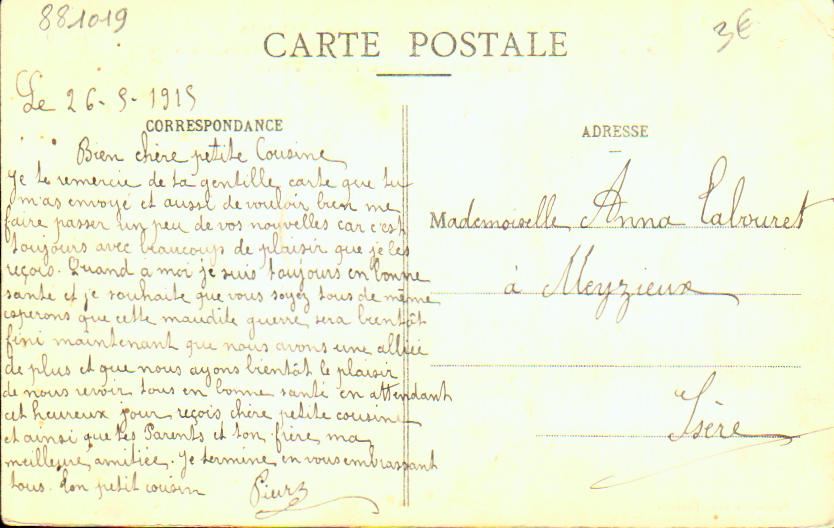 881019
3€
CARTE POSTALE
Le 26-5-1915
CORRESPONDANCE
Bien chère petite Cousine
Je te remercie de ta gentille carte que tu
m'as envoyé et aussi de vouloir bien me
faire passer un peu de vos nouvelles car c'est
toujours avec beaucoups de plaisir que je les
reçois. Quand a moi je suis toujours en bonne
santé et je souhaite que vous soyez tous de même
esperons que cette maudite guerre sera bientôt
fini maintenant que nous avons une alliée
de plus et que nous ayons bientôt le plaisir
de nous revoir tous en bonne santé en attendant
cet heureux jour reçois chère petite cousine
et ainsi que tes Parents et ton frère ma
meilleure amitiée. Je termine en vous embrassant
tous. Ton petit cousin
ADRESSE
Mademoiselle Anna Labouret
à Meyzieux
Isère